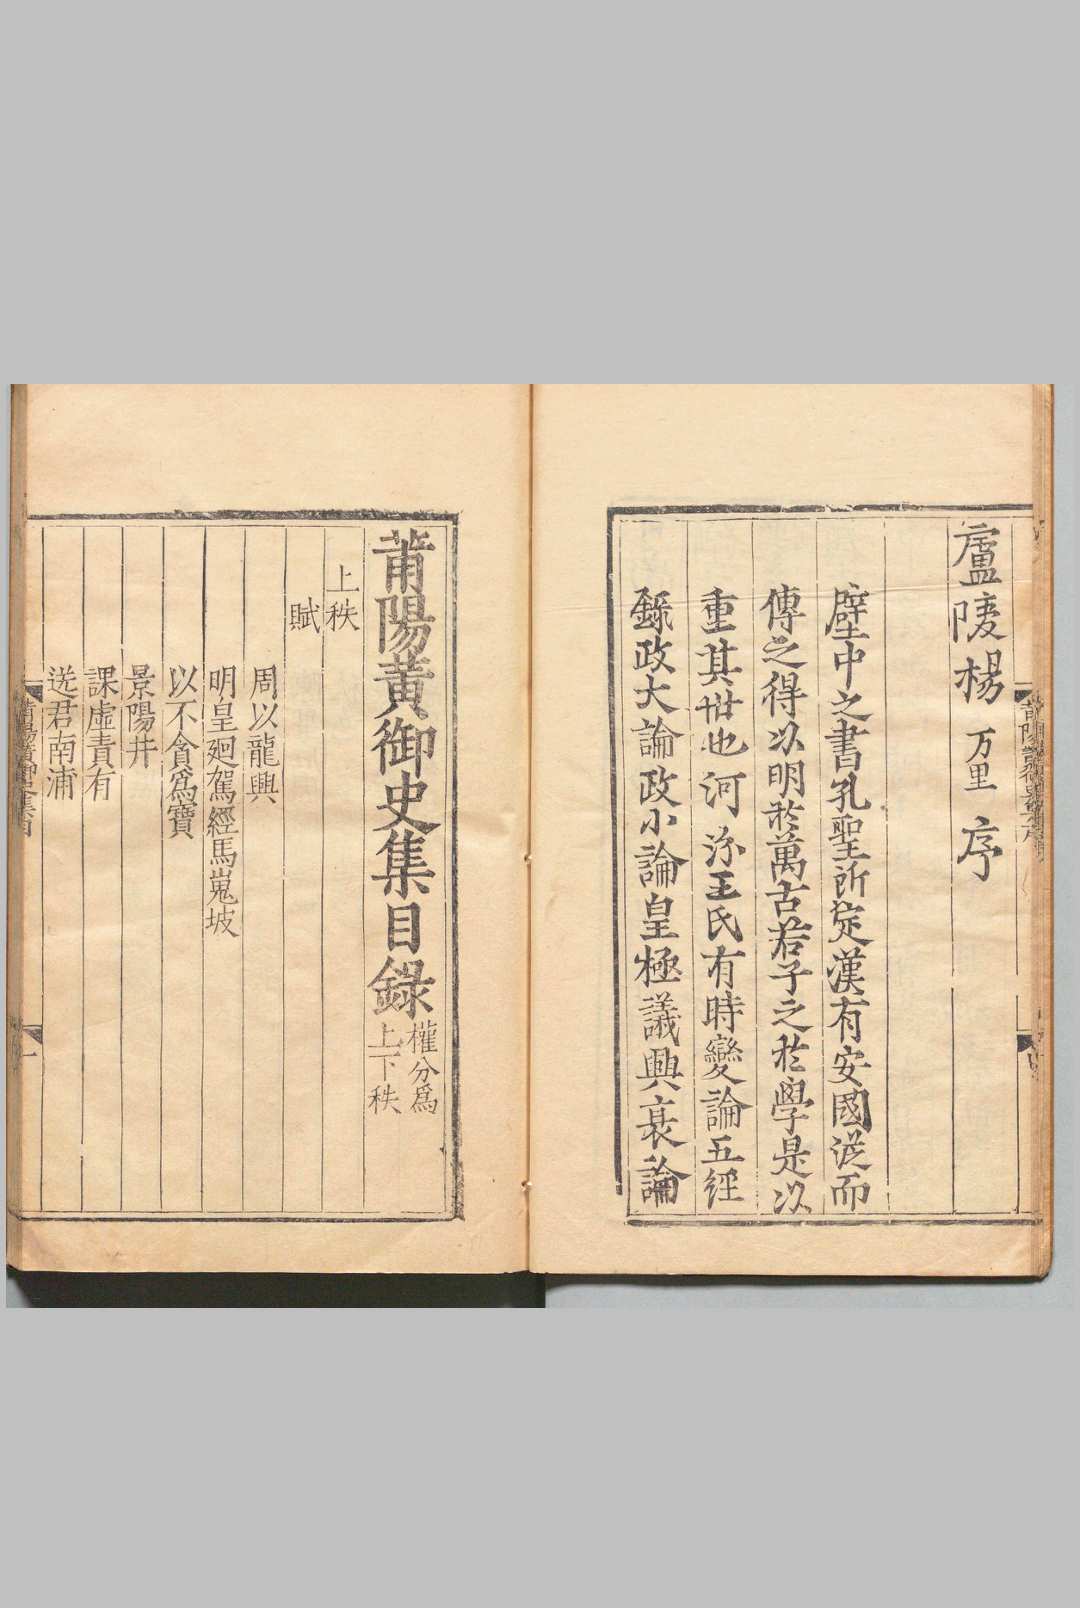 廬陵楊 万里 序
壁中之書孔聖所定漢有安國從而
傳之得以明於萬古若子之於學是以
重其世也河汾王氏有時變論五經
錄政大論政小論皇極議興衰論
莆陽黃御史集目錄 權分爲上下秩
上秩
賦
周以龍興
明皇廻駕經馬嵬坡
以不貪爲寶
景陽井
課虛責有
送君南浦
莆陽黃御史集目
一